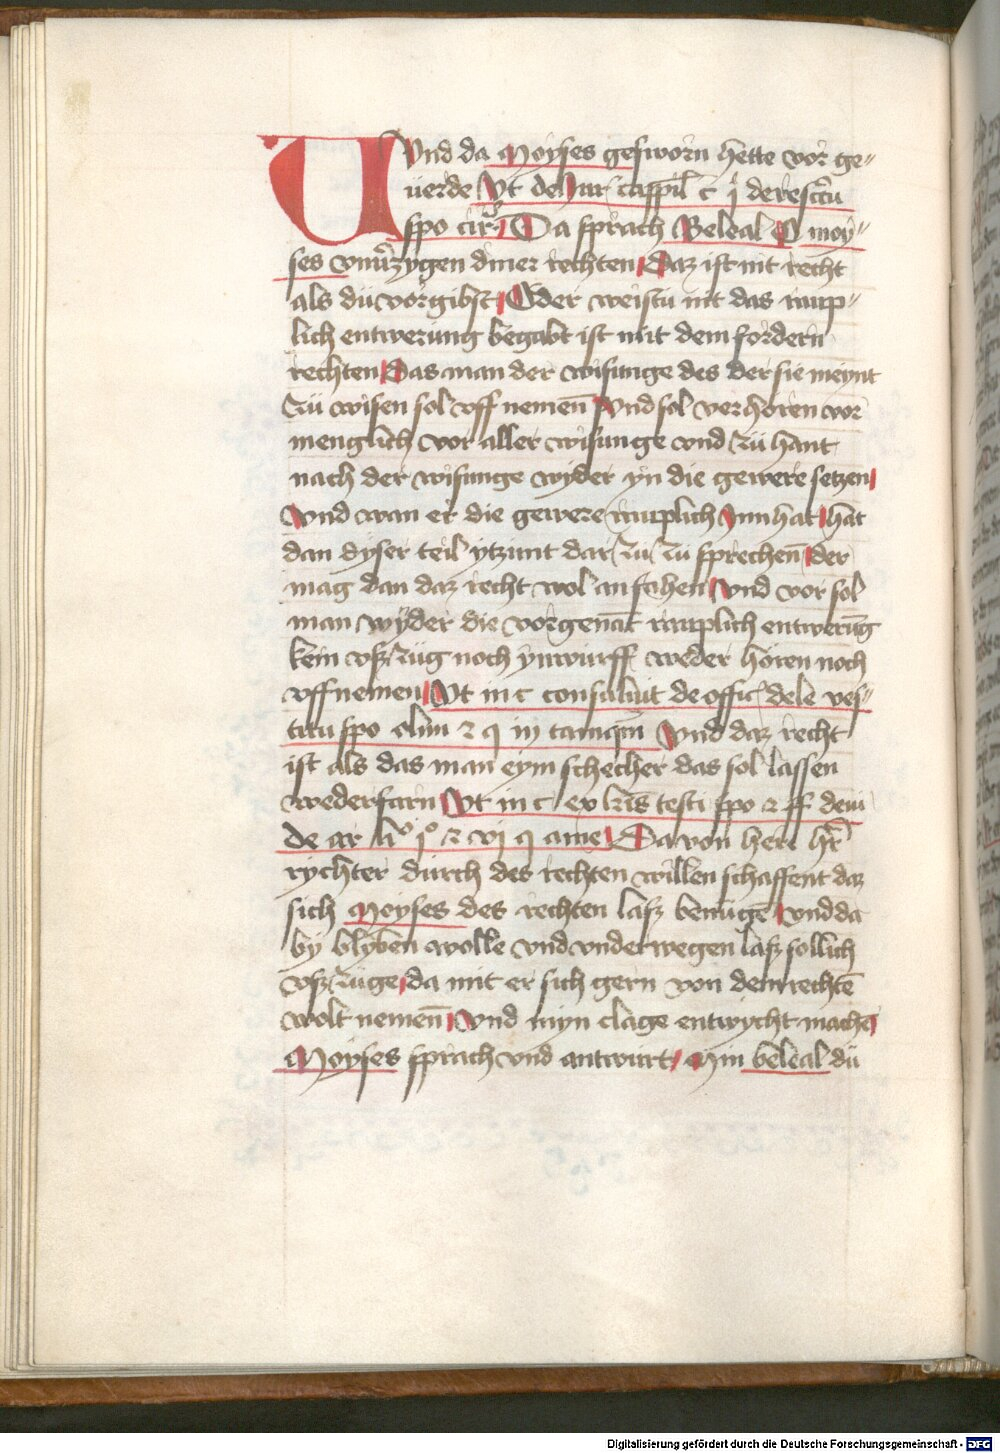 Und da Moyses gesworn hette vor ge„
uerde Vt de Jur cappil c j de restitu
spo cir Da sprach Beleal O moy„
ses vnuerzygen diner rechten Daz ist nit recht
als dü vorgibst Oder weistu nit das raup„
lich entwerung begabt ist mit dem fordern
rechten Das man der wisunge des der sie meynt
zü wisen sol vff nemen vnd sol verhoren vor
menglich vor aller wisunge vnd zü hant
nach der wisunge wyder yn die gewere setzen
Vnd wan er die gewere rauplich Jnnhat hat
dan dyser teil ytzunt dar zu zü sprechen der
mag dan daz recht wol anfahen vnd vor sol
man wyder die vorgenāt rauplich entwerūg
kein vsz zug noch ynwurff weder horen noch
vffnemen Vt in c consuluit de offic dele ves„
titu spo olim z q iij tamqm Vnd daz recht
ist als das man eym schecher das sol lassen
wederfarn Vt in c ex lris testi spo z ff de vi
de ar l j z vj q ame Da von here hr
rychter durch des rechten willen schaffent daz
sich Moyses des rechten lasz benüge vnd da
by blyben wolle vnd vnderwegen lasz sollich
vsz züge da mit er sich gern von dem rechtē
wolt nemen Vnd myn clage entwycht mache
Moyses sprach vnd antwurt Min beleal dü
Digitalisierung gefördert durch die Deutsche Forschungsgemeinschaft - DFG